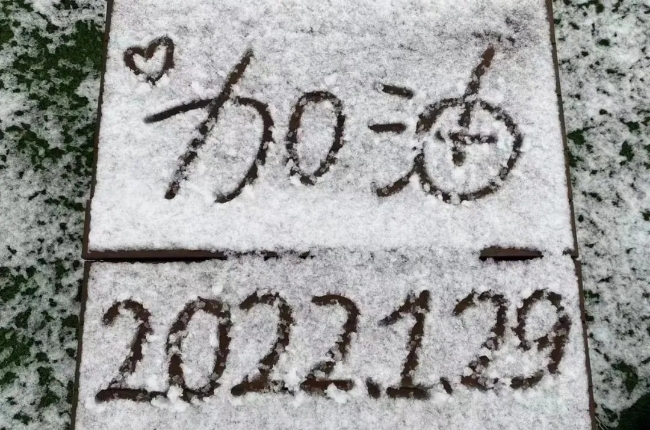 加油
2022.1.29